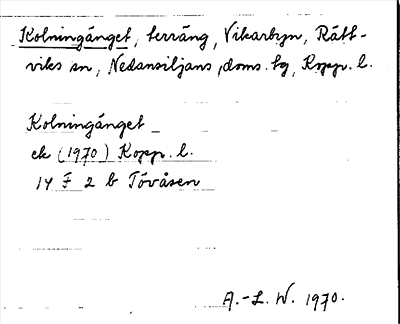 Kolningänget, terräng, Vikarbyn, Rätt-
viks sn, Nedansiljans doms. tg, Kopp. l.
Kolningänget
ek (1970) Kopp. l.
14 F 2 b Tövåsen
A.-L. W. 1970.